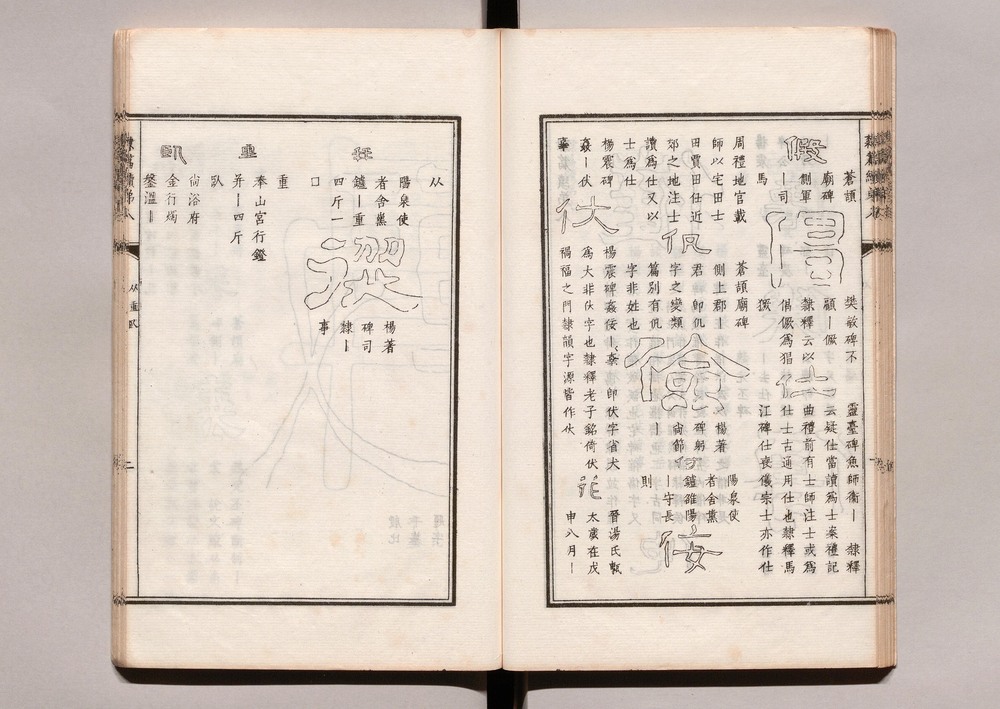 假
蒼頡
廟碑
側軍
—司
馬
樊敏碑不
顧—僛
隸釋云以
倡僛爲猖
獗
仕
靈臺碑魚師衞— 隸釋
云疑仕當讀爲士案禮記
曲禮前有士師注士或爲
仕士古通用仕也隸釋馬
江碑仕喪儀宗士亦作仕
周禮地官載
師以宅田士
田賈田仕近
郊之地注士
讀爲仕又以
士爲仕
仉
蒼頡廟碑
側上郡—
君 卽仉
字之變類
篇別有仉
字非姓也
儉
楊著
碑躬
—尚節
何
陽泉使
者舍熏
鑪雒陽
—守長
則
佞
楊震碑
姦—伏
辜
伏
楊震碑姦佞—辜 卽伏字省犬
爲大非伏字也隸釋老子銘倚伏
禍福之門隸韻字源皆作伏
晉湯氏甎
太歲在戊
申八月—
从
陽泉使
者舍熏
鑪—重
四斤一
口
從
楊著
碑司
隸—
事
重
重
奉山宮行鐙
并—四斤
臥
臥
尚浴府
金行燭
鍳溫—
从重臥